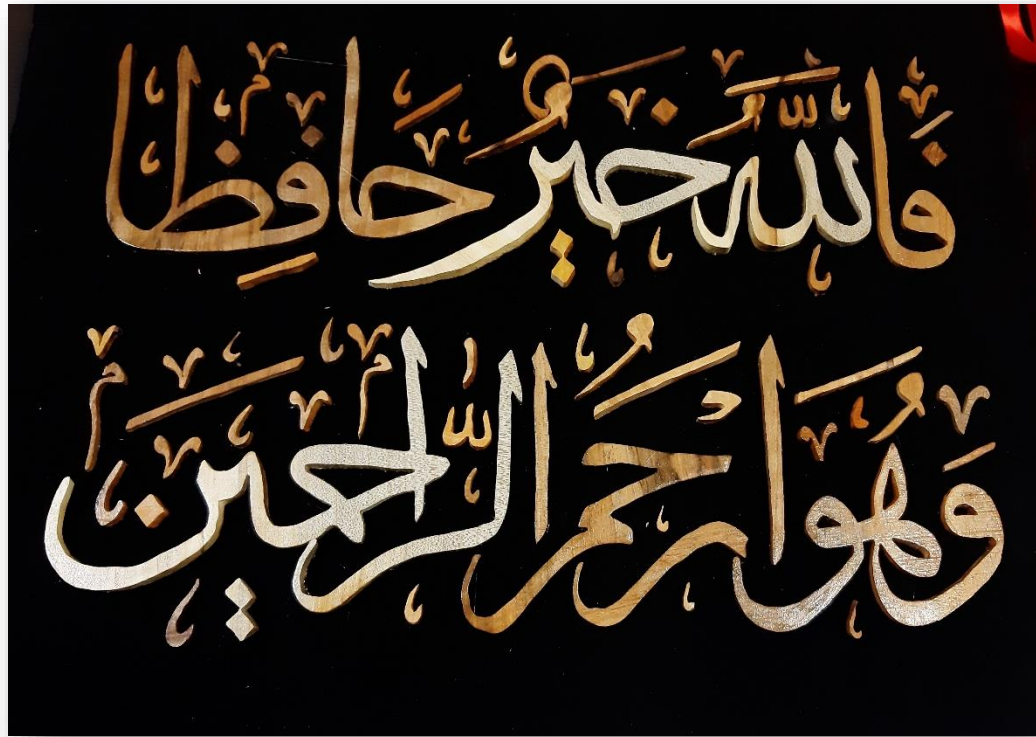 فَاللّٰهُ خَيْرٌ حَافِظًا
وَهُوَ اَرْحَمُ الرَّاحِمِيْنَ